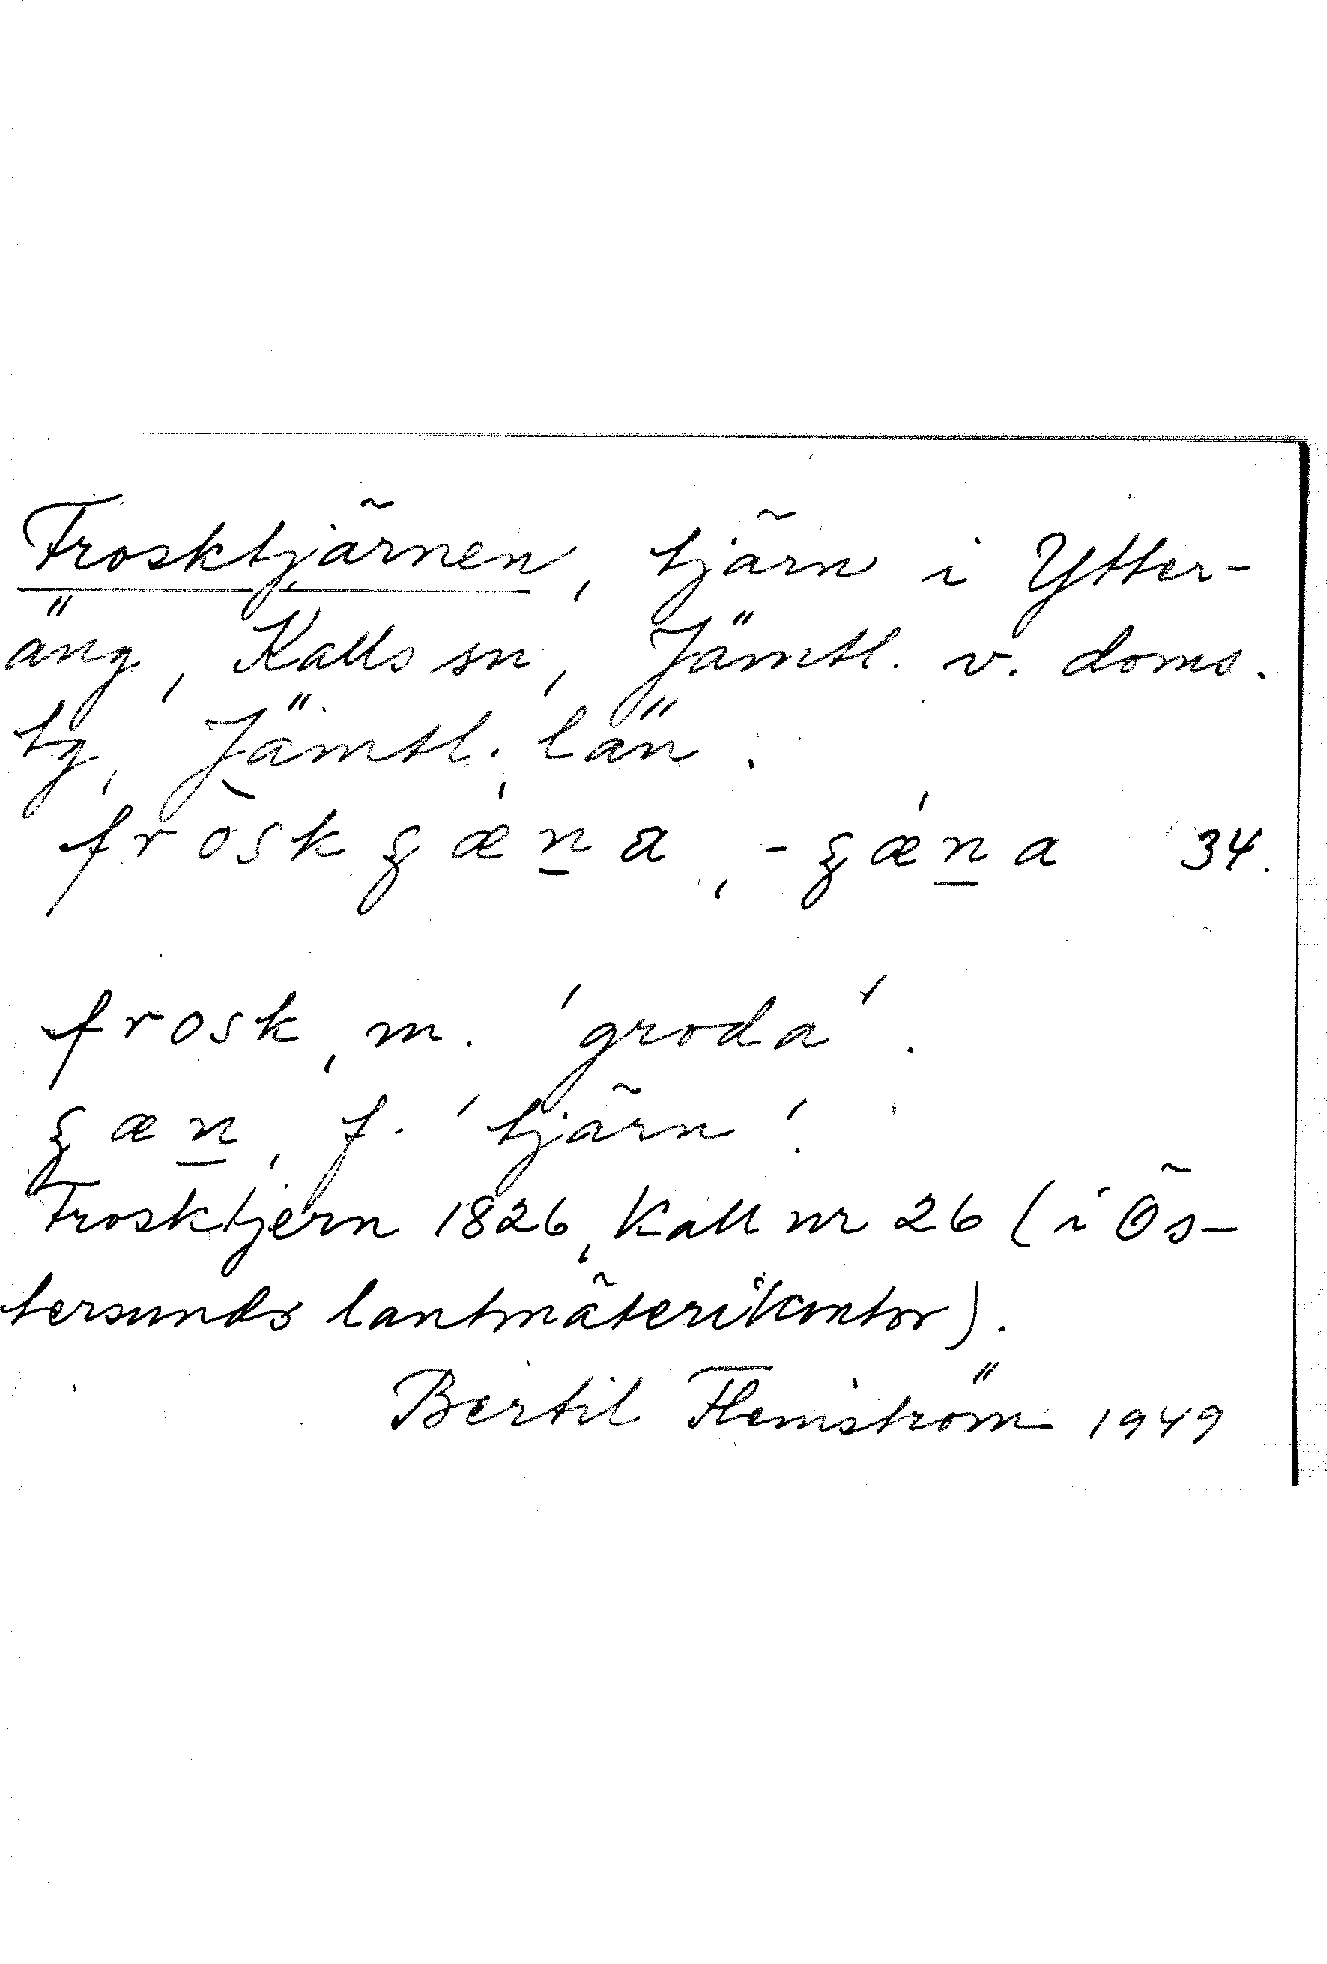 Frosktjärnen, tjärn i Ytter-
äng, Kalls sn, Jämtl. v. doms.
tg, Jämtl. län.
fròskʂǽn̲a, -ʂǽn̲a 34.
frosk, m. 'groda'.
ʂæn̲, f. 'tjärn'.
Frosktjern 1826, Kall nr 26 (i Ös-
tersunds lantmäterikontor).
Bertil Flemström 1949